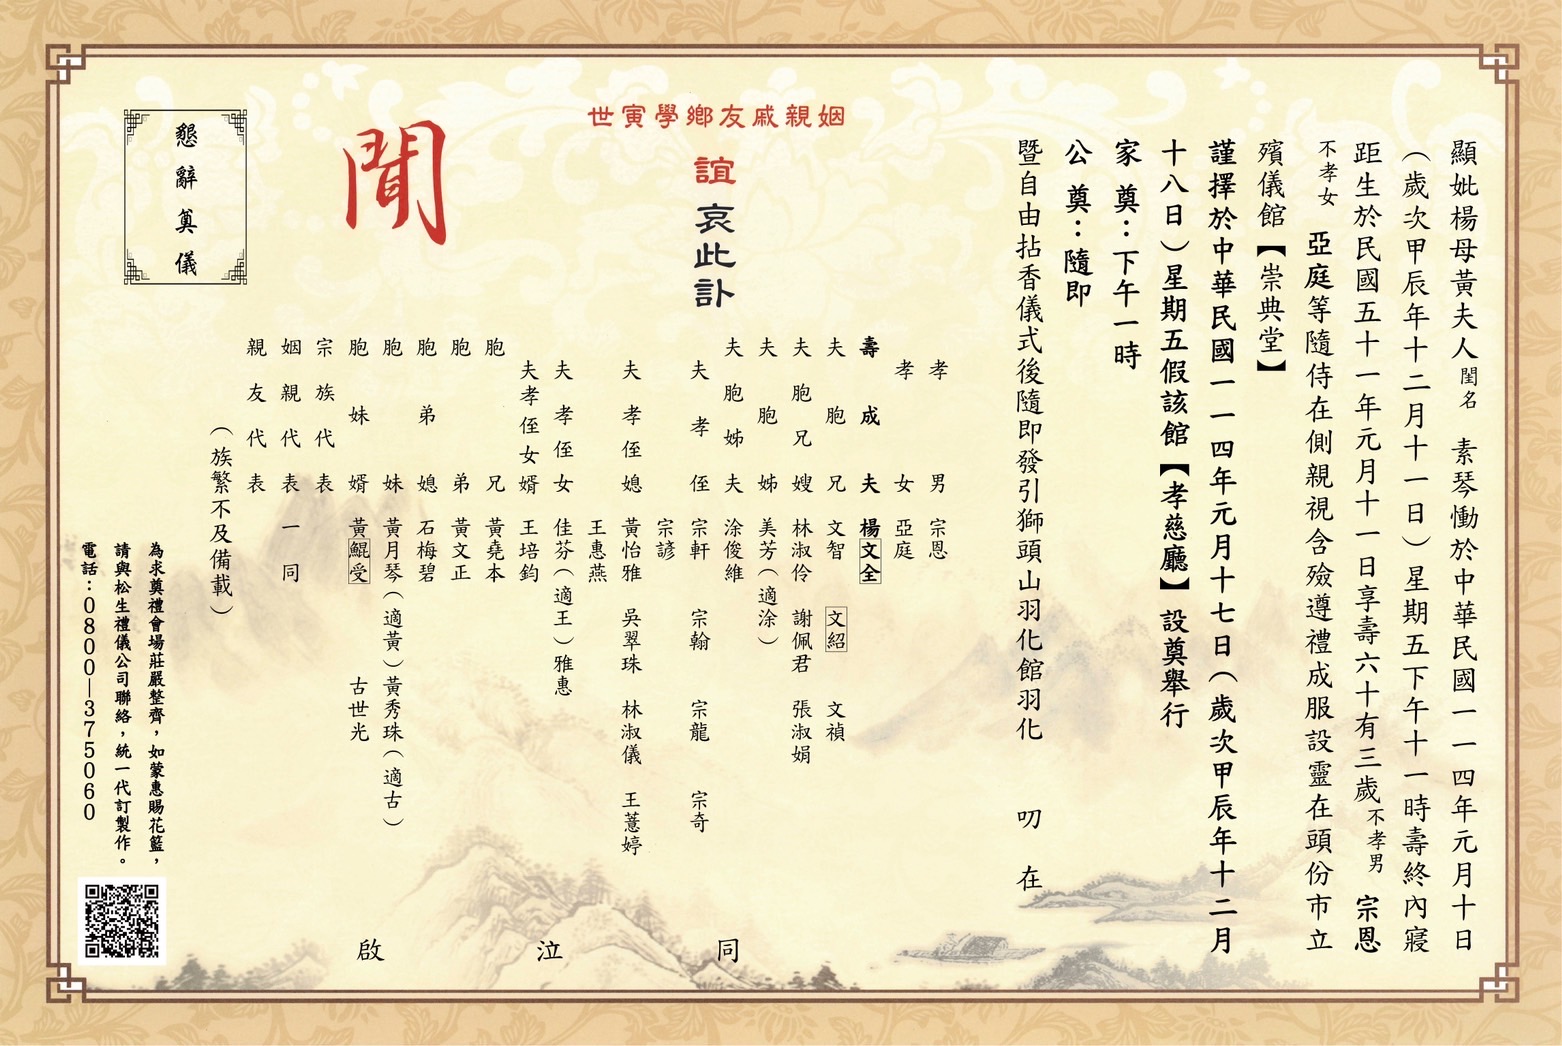 顯妣楊母黃夫人閨名 素琴慟於中華民國一一四年元月十日
（歲次甲辰年十二月十一日）星期五下午十一時壽終內寢
距生於民國五十一年元月十一日享壽六十有三歲不孝男 宗恩
不孝女 亞庭等隨侍在側親視含殮遵禮成服設靈在頭份市立
殯儀館【崇典堂】
謹擇於中華民國一一四年元月十七日（歲次甲辰年十二月
十八日）星期五假該館【孝慈廳】設奠舉行
家 奠：下午一時
公 奠：隨即
暨自由拈香儀式後隨即發引獅頭山羽化館羽化 叨 在
姻親戚友鄉學寅世
誼 哀此訃
聞
孝男 宗恩
孝女 亞庭
壽成夫 楊文全
夫胞兄 文智 文紹 文禎
夫胞兄嫂 林淑伶 謝佩君 張淑娟
夫胞姊 美芳（適涂）
夫胞姊夫 涂俊維
夫孝侄 宗軒 宗翰 宗龍 宗奇
宗諺
夫孝侄媳 黃怡雅 吳翠珠 林淑儀 王薏婷
王惠燕
夫孝侄女 佳芬（適王）雅惠
夫孝侄女婿 王培鈞
胞兄 黃堯本
胞弟 黃文正
胞弟媳 石梅碧
胞妹 黃月琴（適黃）黃秀珠（適古）
胞妹婿 黃鯤受 古世光
宗族代表
姻親代表 一同
親友代表
（族繁不及備載）
同 泣 啟
懇辭奠儀
為求奠禮會場莊嚴整齊，如蒙惠賜花籃，
請與松生禮儀公司聯絡，統一代訂製作。
電話：0800—375060